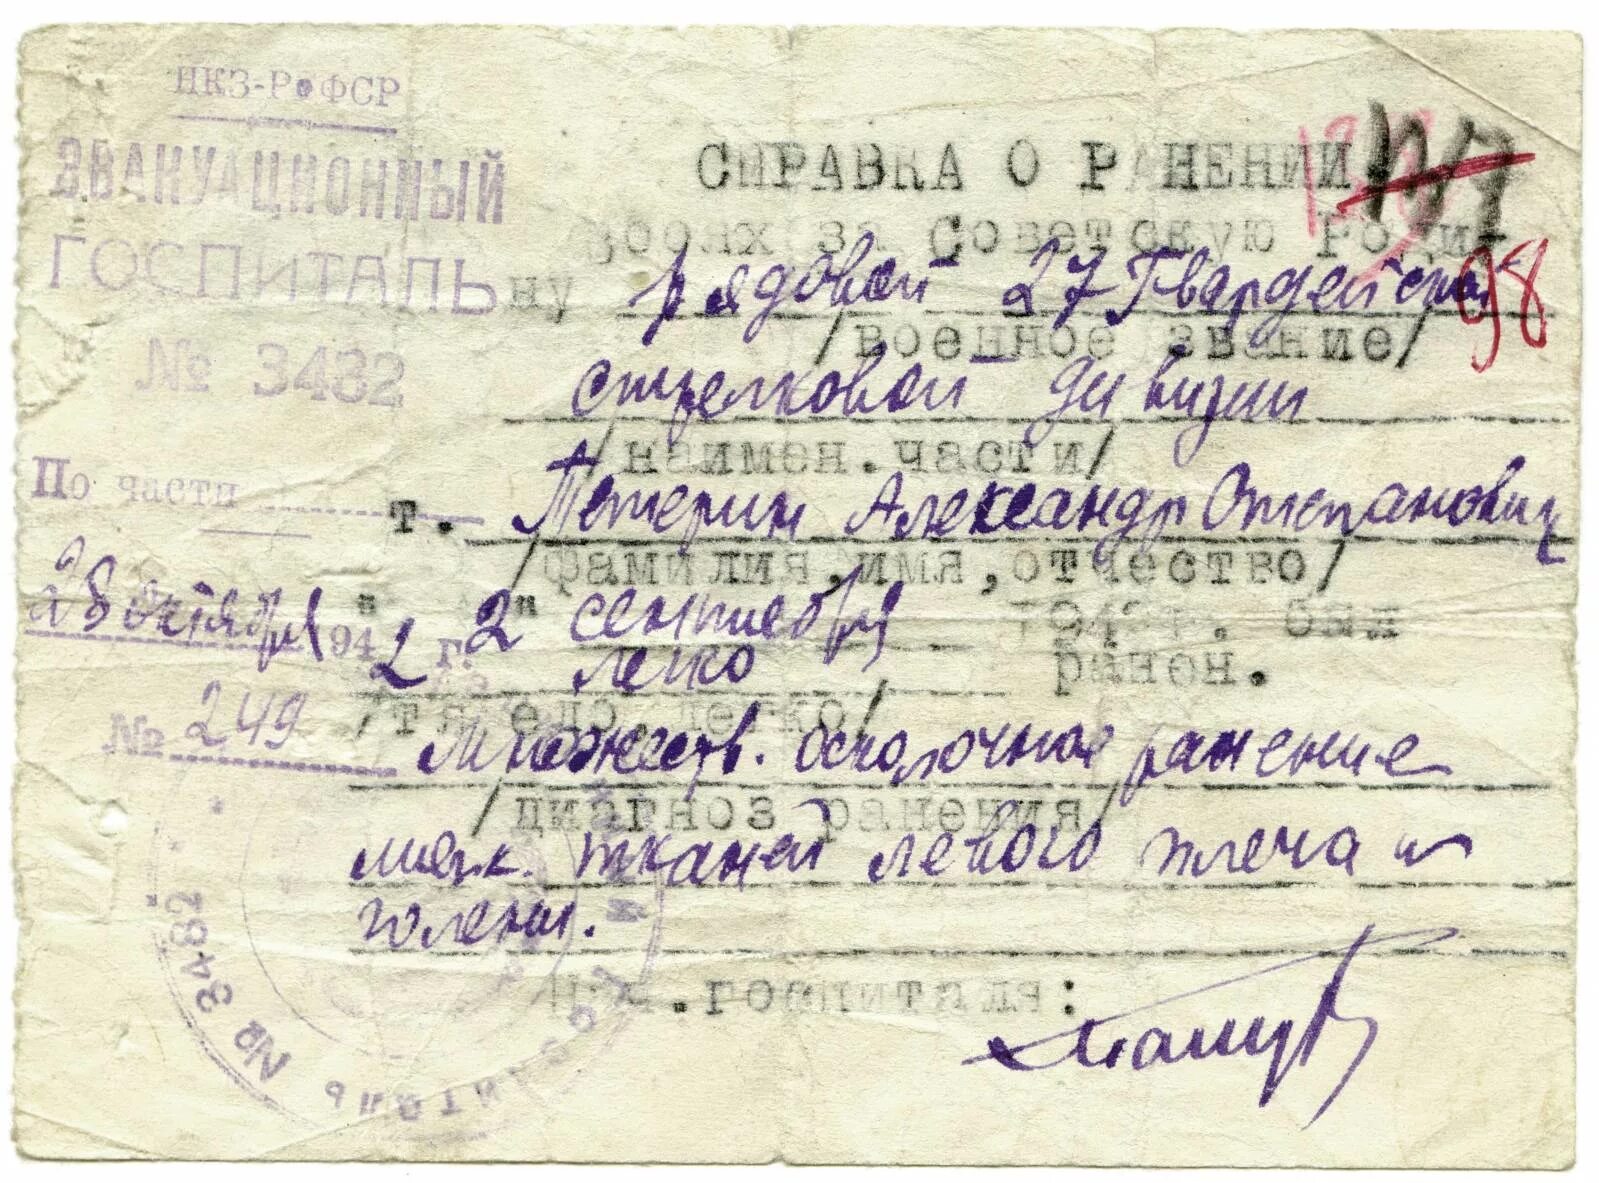 НКЗ-РсФСР
ЭВАКУАЦИОННЫЙ
ГОСПИТАЛЬ
№ 3482
По части
28 октября 1942 г.
№ 249
СПРАВКА О РАНЕНИИ
98
В боях за Советскую Роди-
ну рядовой 27 Гвардейской
/военное звание/
стрелковой дивизии
/наимен.части/
т. Петерин Александр Степанович
/фамилия,имя,отчество/
"2" сентября 1942г. был
легко ранен.
/тяжело,легко/
Множеств. осколочное ранение
/диагноз ранения/
мягк. тканей левого плеча и
голени.
Нач.госпиталя:
№ 3482
ГОСПИТАЛЬ